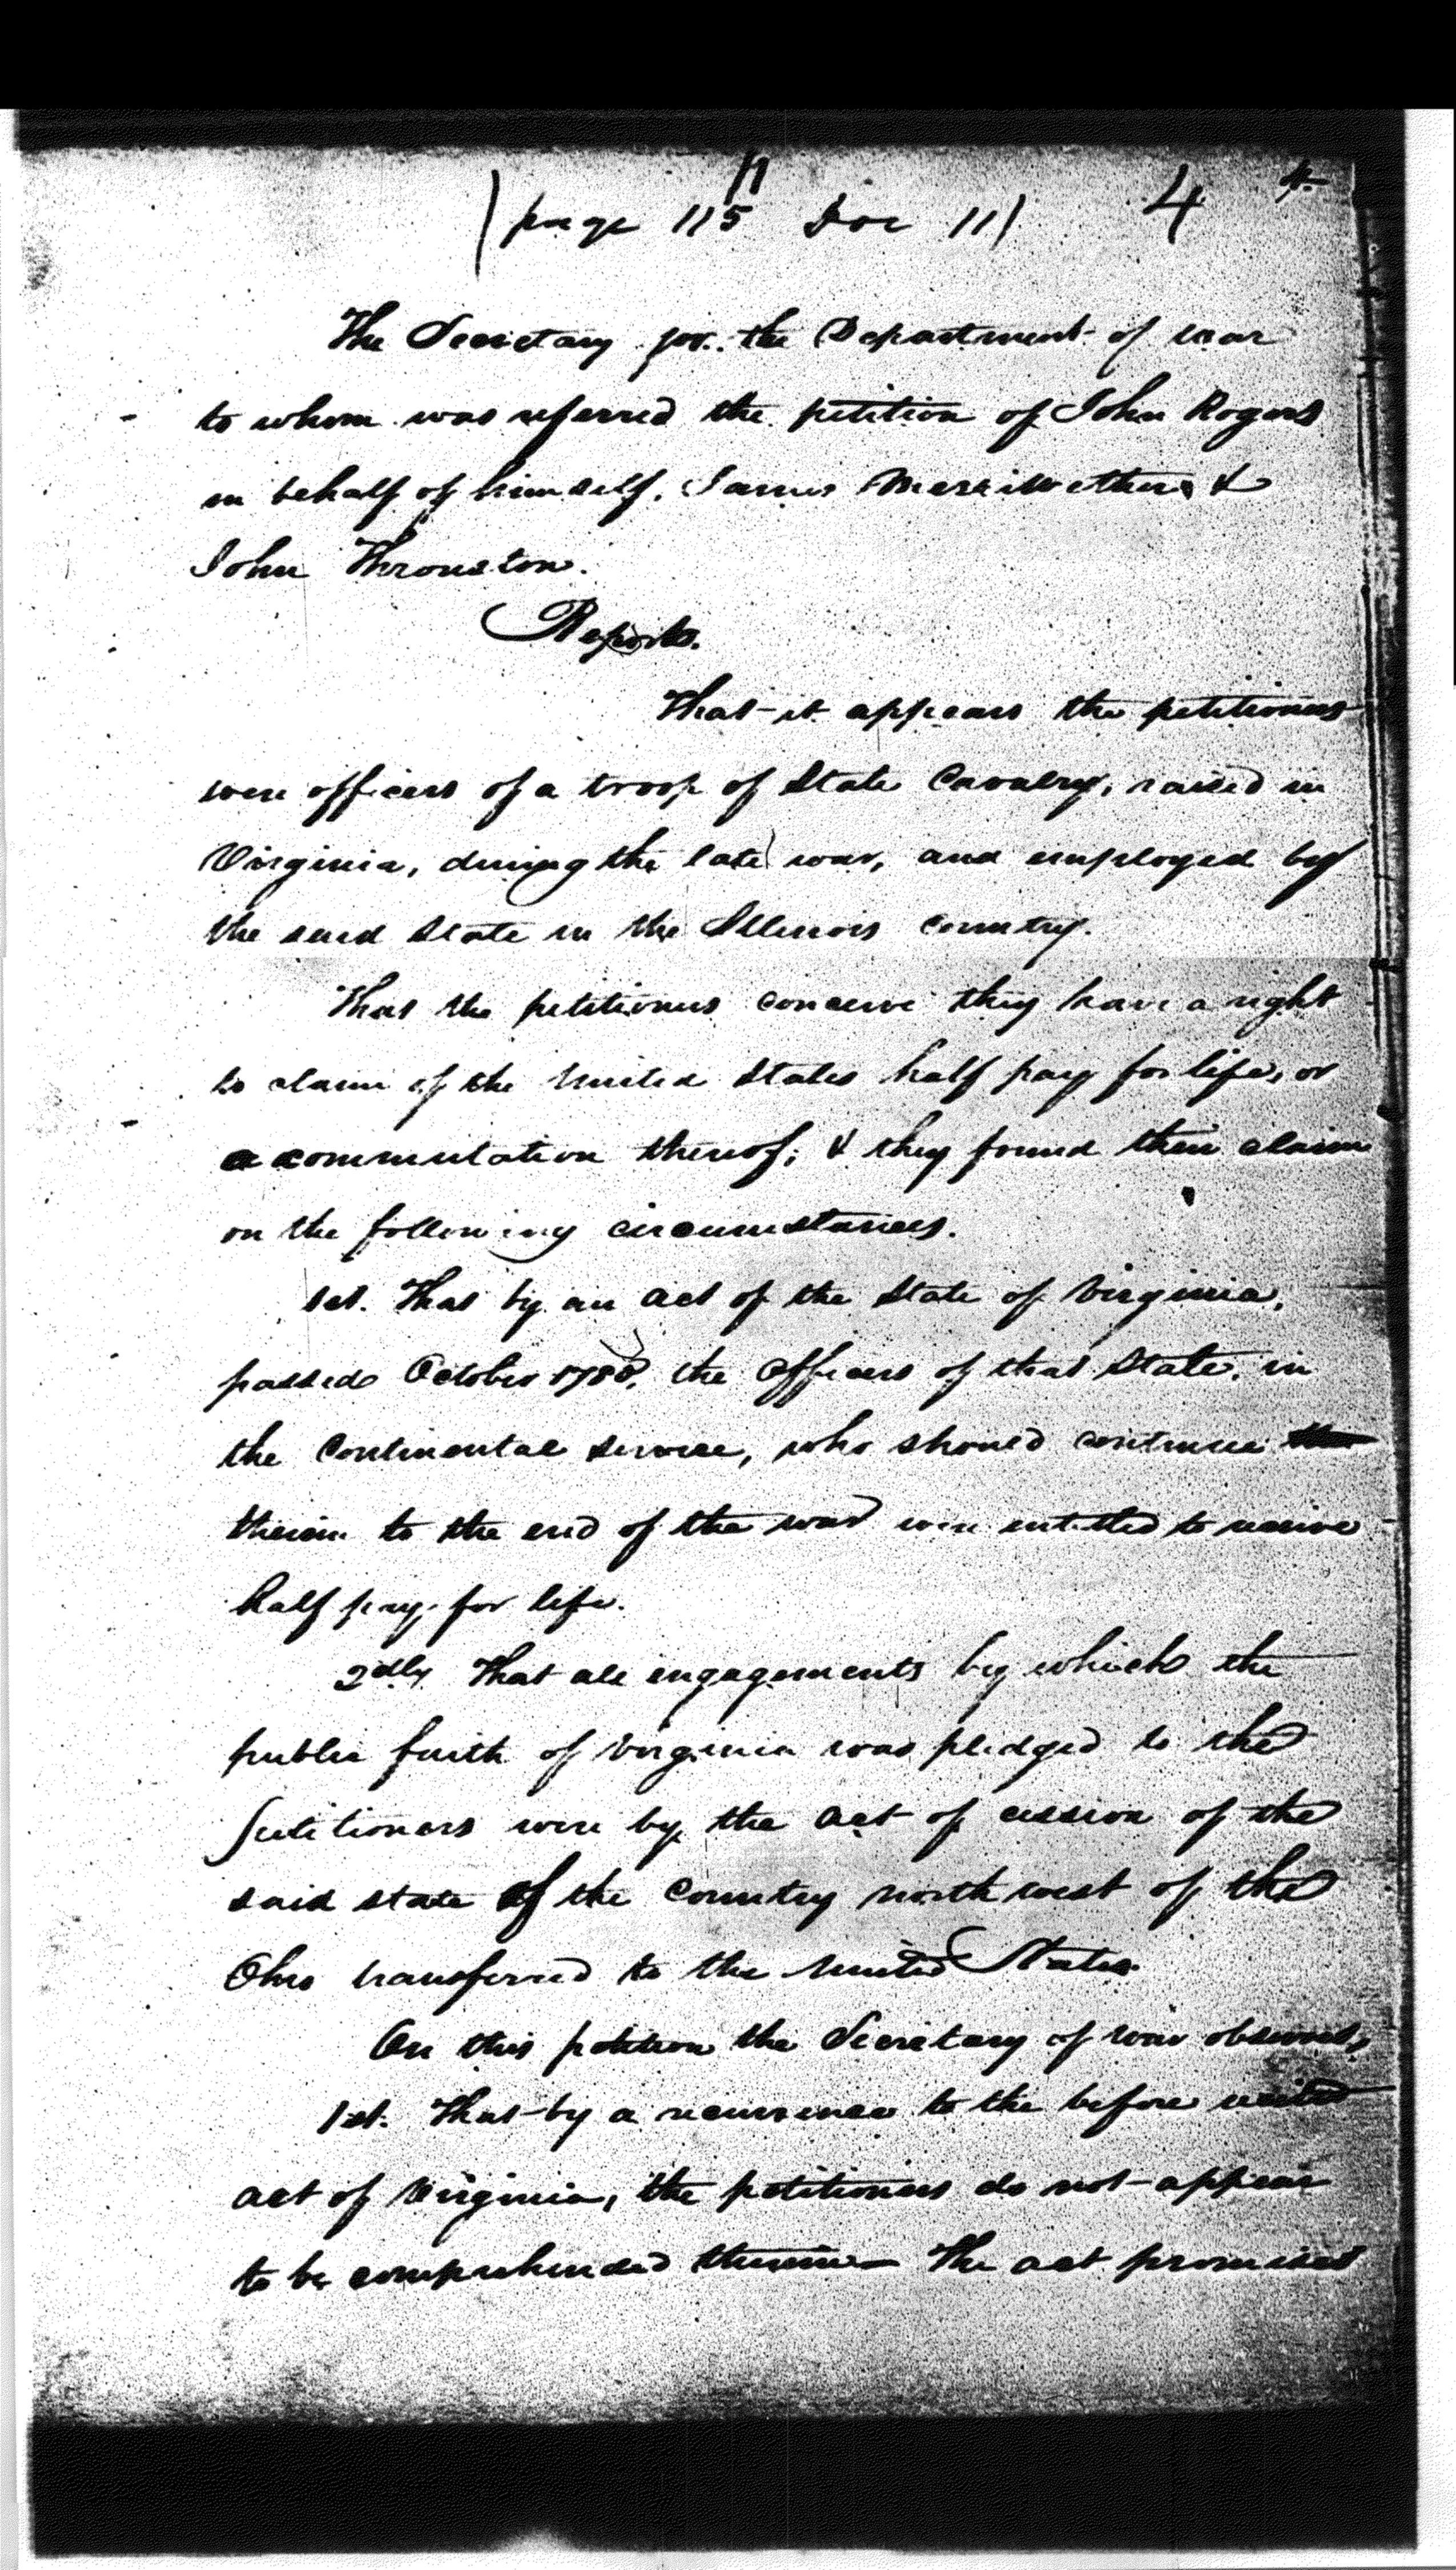 11
(page 115 Doc 11) 4 4
The Secretary for the Department of war
to whom was referred the petition of John Rogers
in behalf of himself, James Merriwether &
John Thronston.
Reports.
That it appears the petitioners
were officers of a troop of State Cavalry, raised in
Virginia, during the late war, and employed by
the said State in the Illinois Country.
That the petitioners conceive they have a right
to claim of the United States half pay for life, or
a commutation thereof; & they found their claim
on the following circumstances.
1st. That by an act of the State of Virginia,
passed October 1780, the officers of that State, in
the Continental service, who should continue
therein to the end of the war were entitled to receive
half pay for life.
2dly. That all engagements by which the
public faith of Virginia was pledged to the
petitioners were by the act of cession of the
said state of the Country north west of the
Ohio transferred to the United States.
On this petition the Secretary of War observes,
1st. That by a recurrence to the before recited
act of Virginia, the petitioners do not appear
to be comprehended therein— The act promised